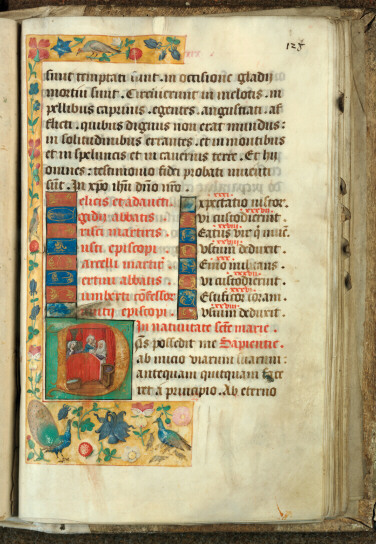 128
sunt temptati sunt. in occisione gladij
mortui sunt. Circuierunt in melotis. in
pellibus caprinis. egentes. angustiati. af-
flicti. quibus dignus non erat mundus:
in solitudinibus errantes. et in montibus
et in speluncis et in cavernis terre. Et hii
omnes: testimonio fidei probati inventi
sunt. In xpo ihu dno nro.
elicis et adaucti
gidij abbatis
risci martiris
usti. episcopi
arcelli martiris
ertini abbatis
umberti confessor
episcopi
xxxi.
xpectatio iustor.
xxxvii.
vi custodierint.
xxviii.
Eatus vir q. inve.
xxxviii.
ustum deduxit.
xxx.
Emo militans.
xxxvii.
vi custodierint.
xxxi.
Esurrexit coram.
xxxviii.
ustum deduxit.
In nativitate scte marie.
Ds possedit me Sapientie.
ab inicio viarum suarum:
antequam quicquam face
ret a principio. Ab eterno